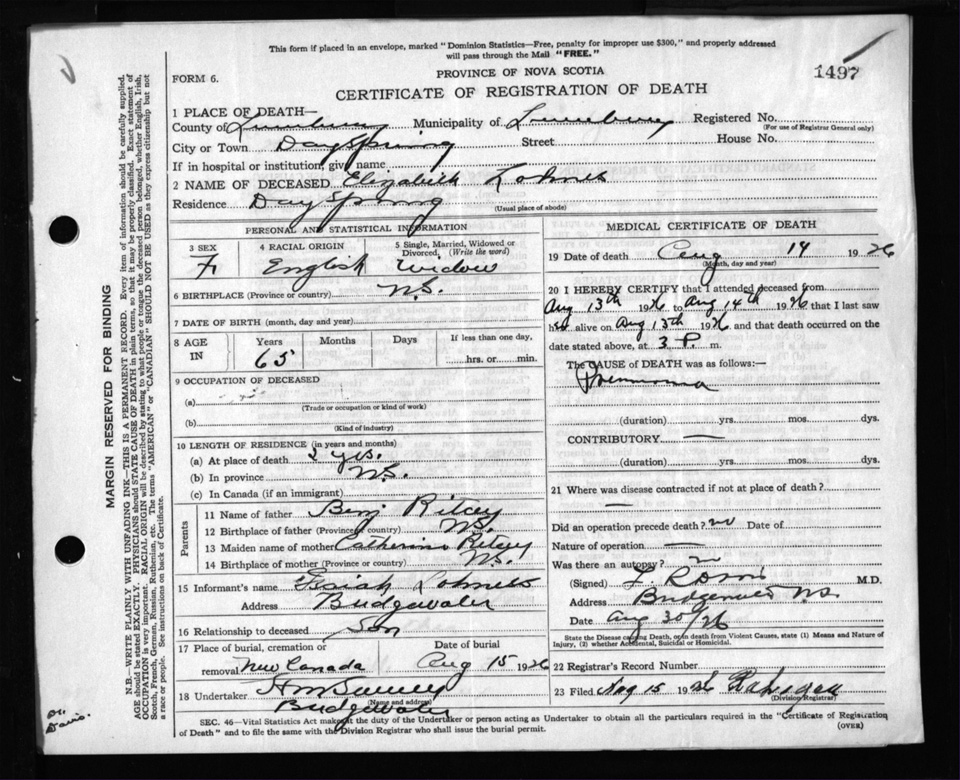 This form if placed in an envelope, marked "Dominion Statistics—Free, penalty for improper use $300," and properly addressed
will pass through the Mail "FREE."
FORM 6.
PROVINCE OF NOVA SCOTIA
1497
CERTIFICATE OF REGISTRATION OF DEATH
1 PLACE OF DEATH—
County of Lunenburg Municipality of Lunenburg Registered No.
(For use of Registrar General only)
City or Town Dayspring Street House No.
If in hospital or institution, give name
2 NAME OF DECEASED Elizabeth Lohnes
Residence Day Spring
(Usual place of abode)
PERSONAL AND STATISTICAL INFORMATION
3 SEX 4 RACIAL ORIGIN 5 Single, Married, Widowed or
Divorced. (Write the word)
F English Widow
6 BIRTHPLACE (Province or country) N.S.
7 DATE OF BIRTH (month, day and year)
8 AGE IN Years Months Days If less than one day,
65 hrs. or min.
9 OCCUPATION OF DECEASED
(a)
(Trade or occupation or kind of work)
(b)
(Kind of industry)
10 LENGTH OF RESIDENCE (in years and months)
(a) At place of death 2 yrs.
(b) In province N.S.
(c) In Canada (if an immigrant)
Parents
11 Name of father Benj Ritcey
12 Birthplace of father (Province or country) N.S.
13 Maiden name of mother Catherine Ritcey
14 Birthplace of mother (Province or country) N.S.
15 Informant's name Isiah Lohnes
Address Bridgewater
16 Relationship to deceased Son
17 Place of burial, cremation or Date of burial
removal New Canada Aug 15 1926
18 Undertaker
(Name and address)
Bridgewater
MEDICAL CERTIFICATE OF DEATH
19 Date of death Aug 14 1926
(Month, day and year)
20 I HEREBY CERTIFY that I attended deceased from
Aug 13th 1926 to Aug 14th 1926 that I last saw
her alive on Aug 13th 1926 and that death occurred on the
date stated above, at 3 P. m.
The CAUSE OF DEATH was as follows:—
Pneumonia
(duration) yrs. mos. dys.
CONTRIBUTORY —
(duration) yrs. mos. dys.
21 Where was disease contracted if not at place of death?
—
Did an operation precede death? no Date of
Nature of operation —
Was there an autopsy? no
(Signed) M.D.
Address Bridgewater N.S.
Date Aug 30/26
State the Disease causing Death, or in death from Violent Causes, state (1) Means and Nature of
Injury, (2) whether Accidental, Suicidal or Homicidal.
22 Registrar's Record Number
23 Filed Aug 15 1926
(Division Registrar)
SEC. 46—Vital Statistics Act makes it the duty of the Undertaker or person acting as Undertaker to obtain all the particulars required in the "Certificate of Registration
of Death" and to file the same with the Division Registrar who shall issue the burial permit.
(OVER)
MARGIN RESERVED FOR BINDING
N.B.—WRITE PLAINLY WITH UNFADING INK—THIS IS A PERMANENT RECORD. Every item of information should be carefully supplied.
AGE should be stated EXACTLY. PHYSICIANS should STATE CAUSE OF DEATH in plain terms, so that it may be properly classified. Exact statement of
OCCUPATION is very important. RACIAL ORIGIN will be described by stating to what people or tongue the deceased person belonged, whether English, Irish,
Scotch, French, German, Russian, Ruthenian, etc. The terms "AMERICAN" or "CANADIAN" SHOULD NOT BE USED as they express citizenship but not
a race or people. See instructions on back of Certificate.